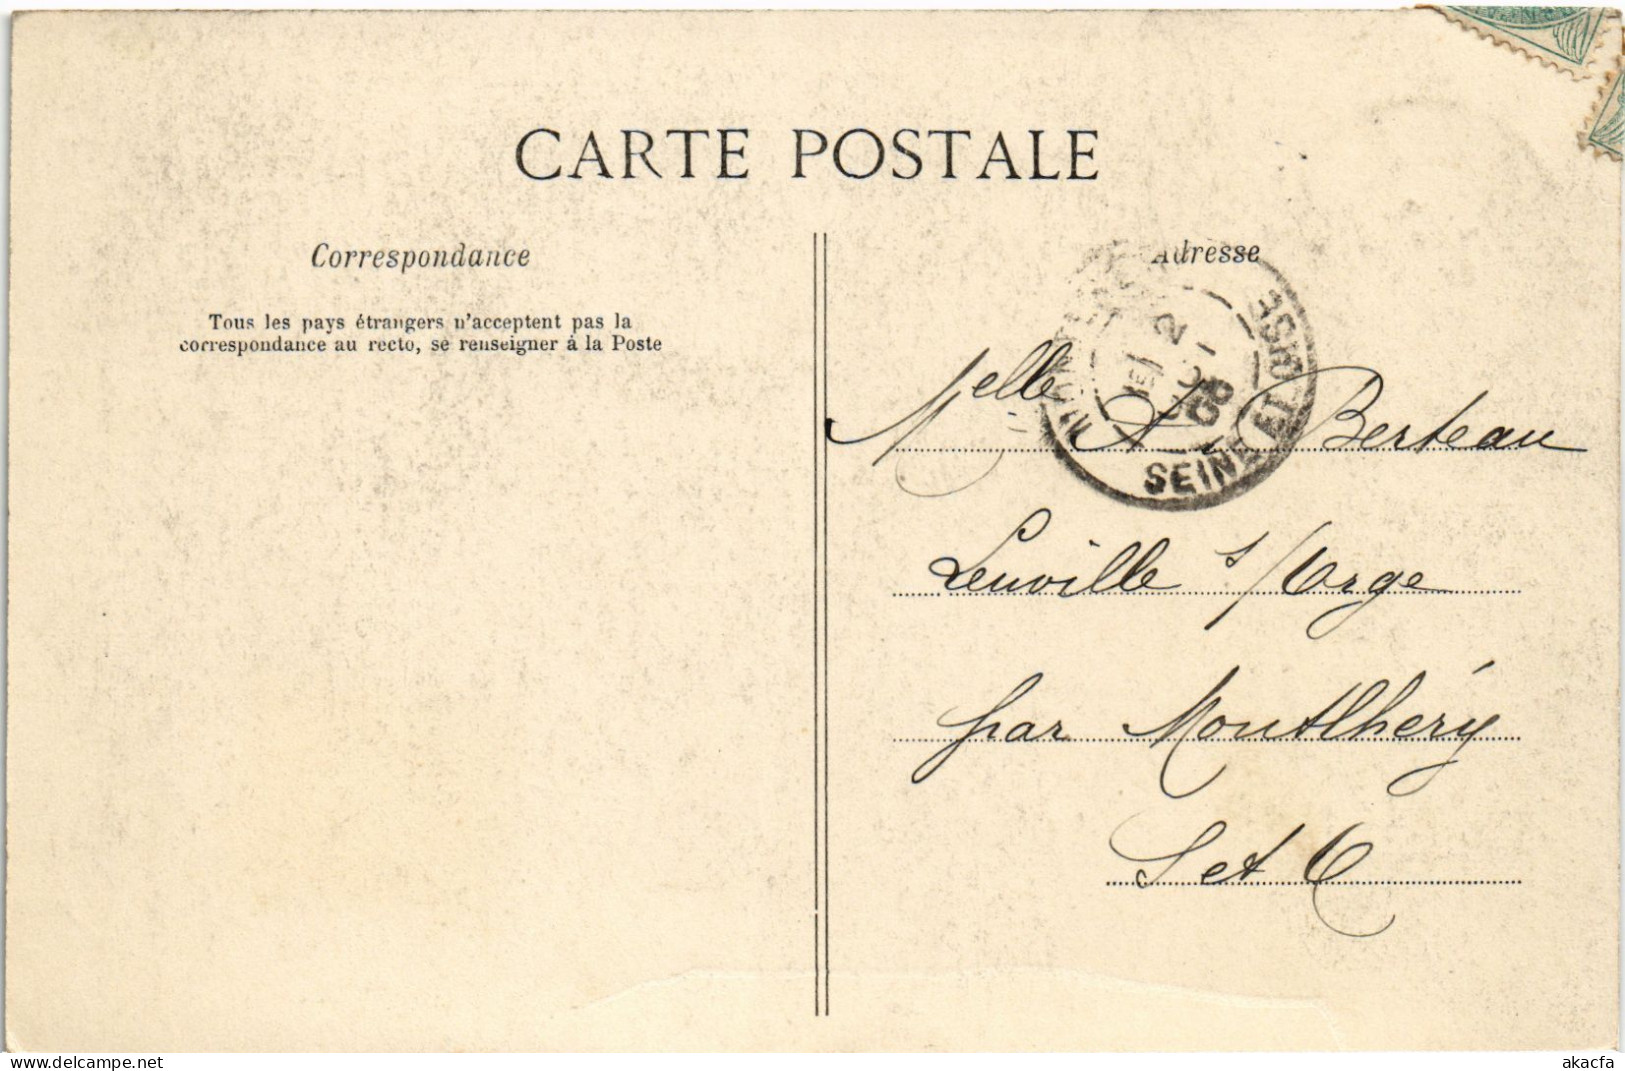 CARTE POSTALE
Correspondance
Tous les pays étrangers n'acceptent pas la
correspondance au recto, se renseigner à la Poste
Adresse
SEINE
Melle A Berteau
Leuville s/Orge
par Montlhéry
S et O
www.delcampe.net
akacfa